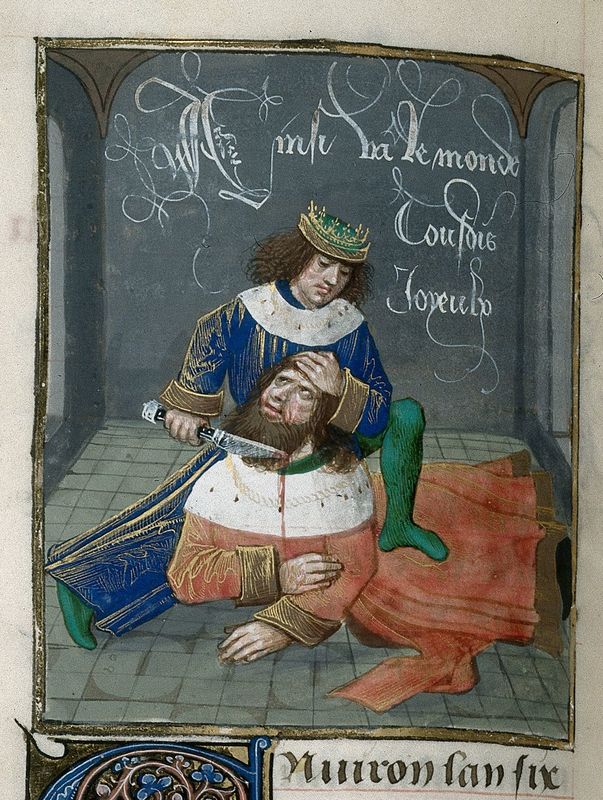 Ainsi va le monde
Tousdis
Joyeulx
ENuiron lan six